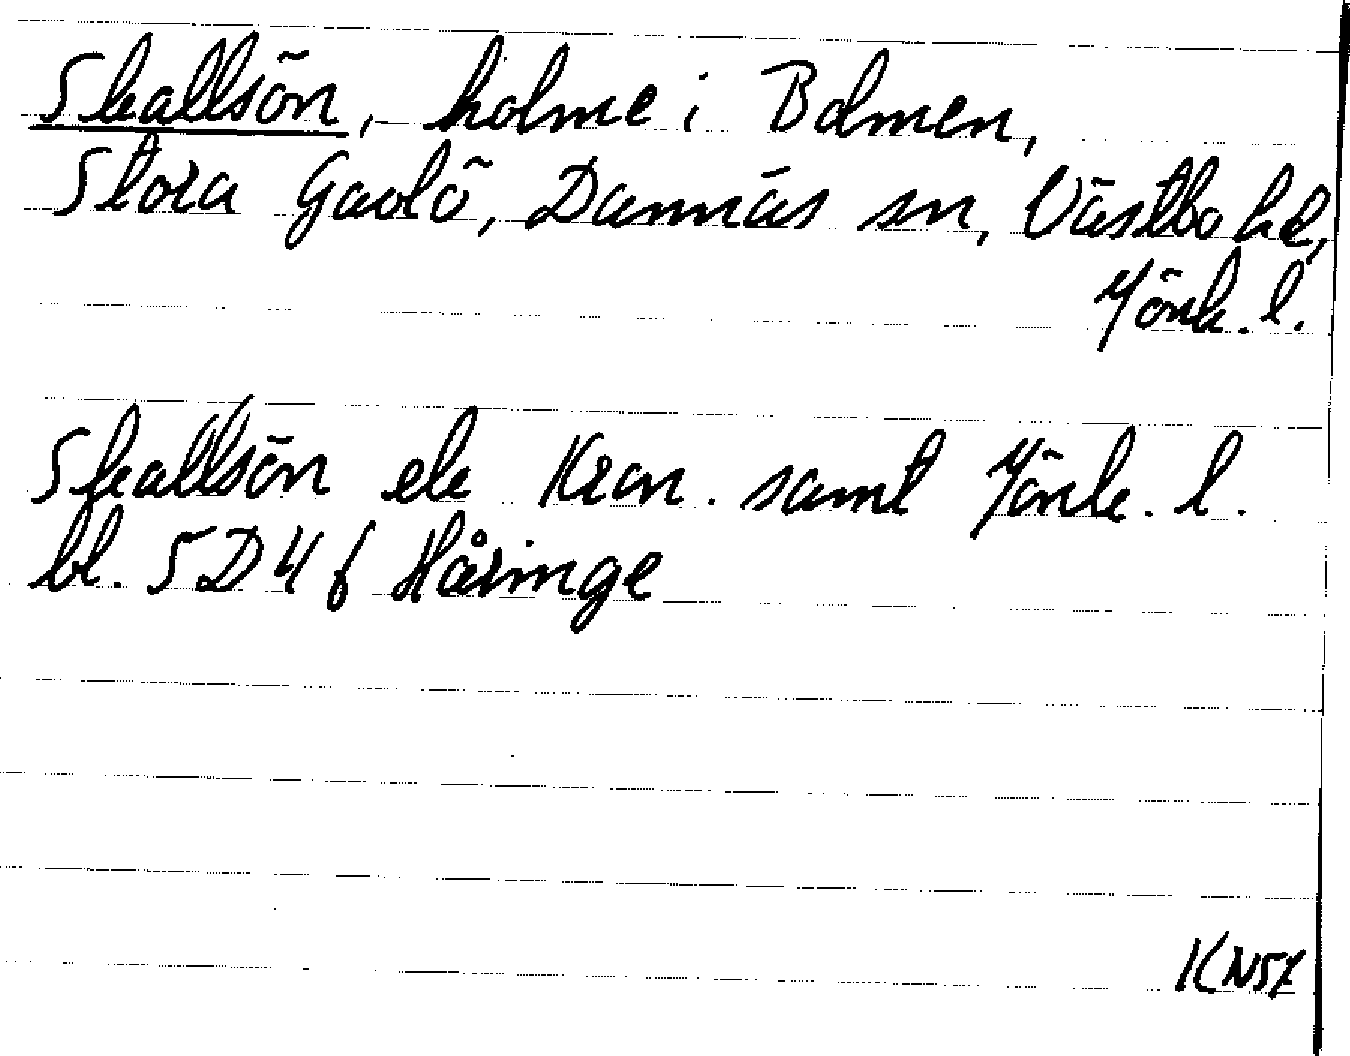 Skallsön, holme i Bolmen,
Stora Gaolö, Dannäs sn, Västbo hd,
Jönk. l.
Skallsön ek Kron. samt Jönk. l.
bl. 5D4f Håringe